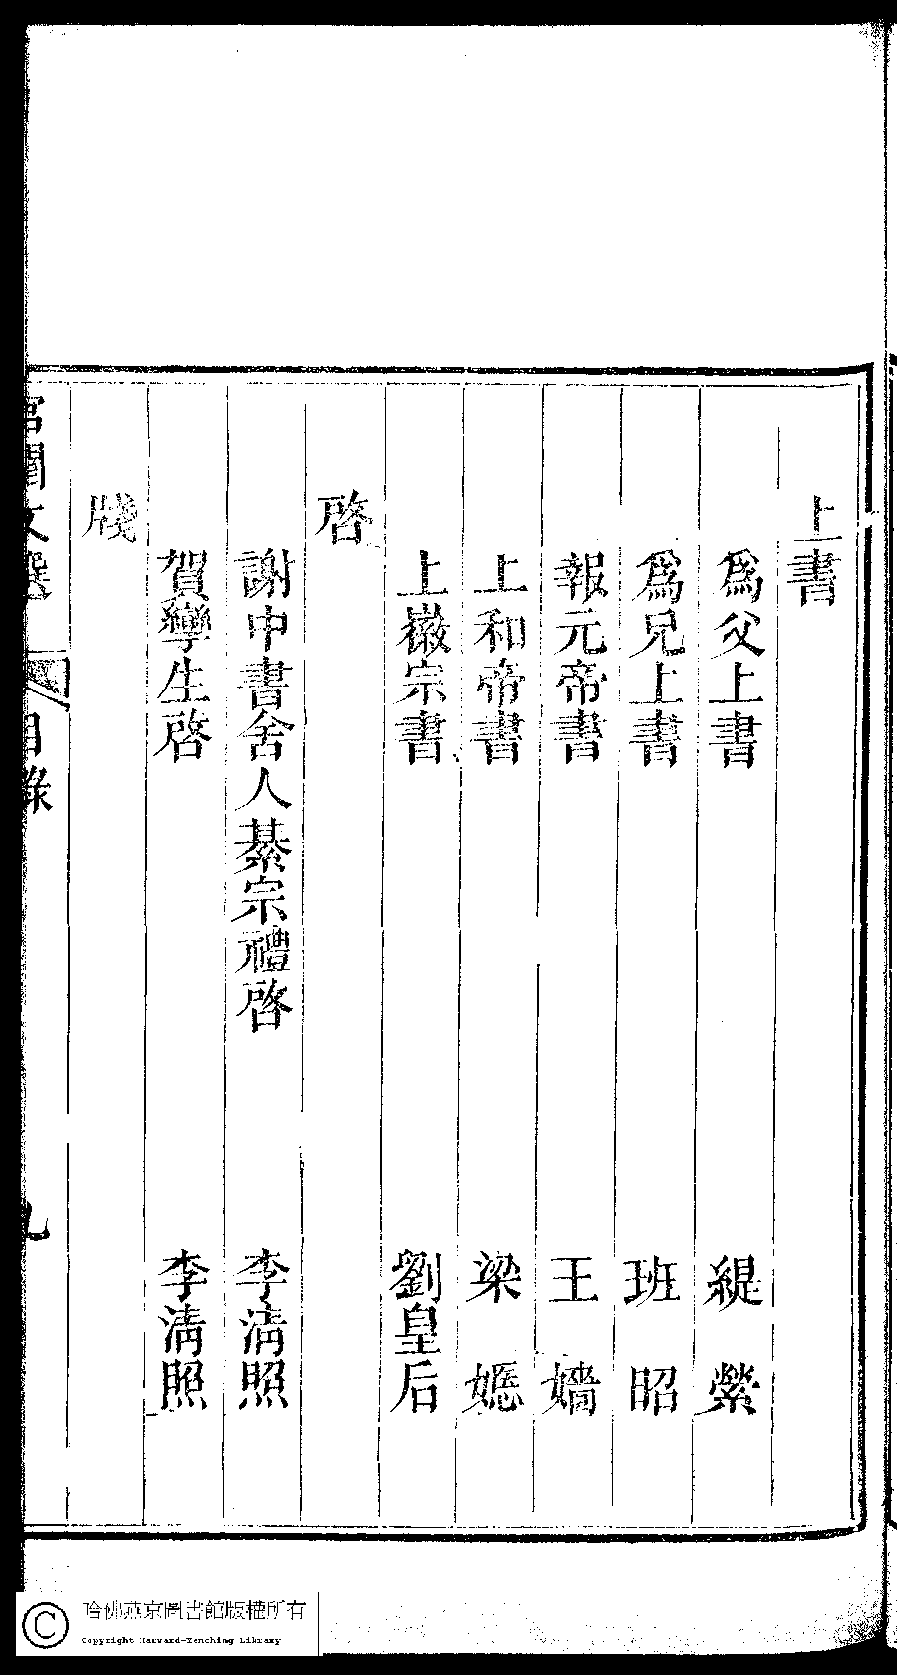 上書
爲父上書 緹縈
爲兄上書 班昭
報元帝書 王嬙
上和帝書 梁嫕
上徽宗書 劉皇后
啓
謝中書舍人綦宗禮啓 李淸照
賀孿生啓 李淸照
牋
宮閨文選 目錄 九
哈佛燕京圖書館版權所有
Copyright Harvard-Yenching Library